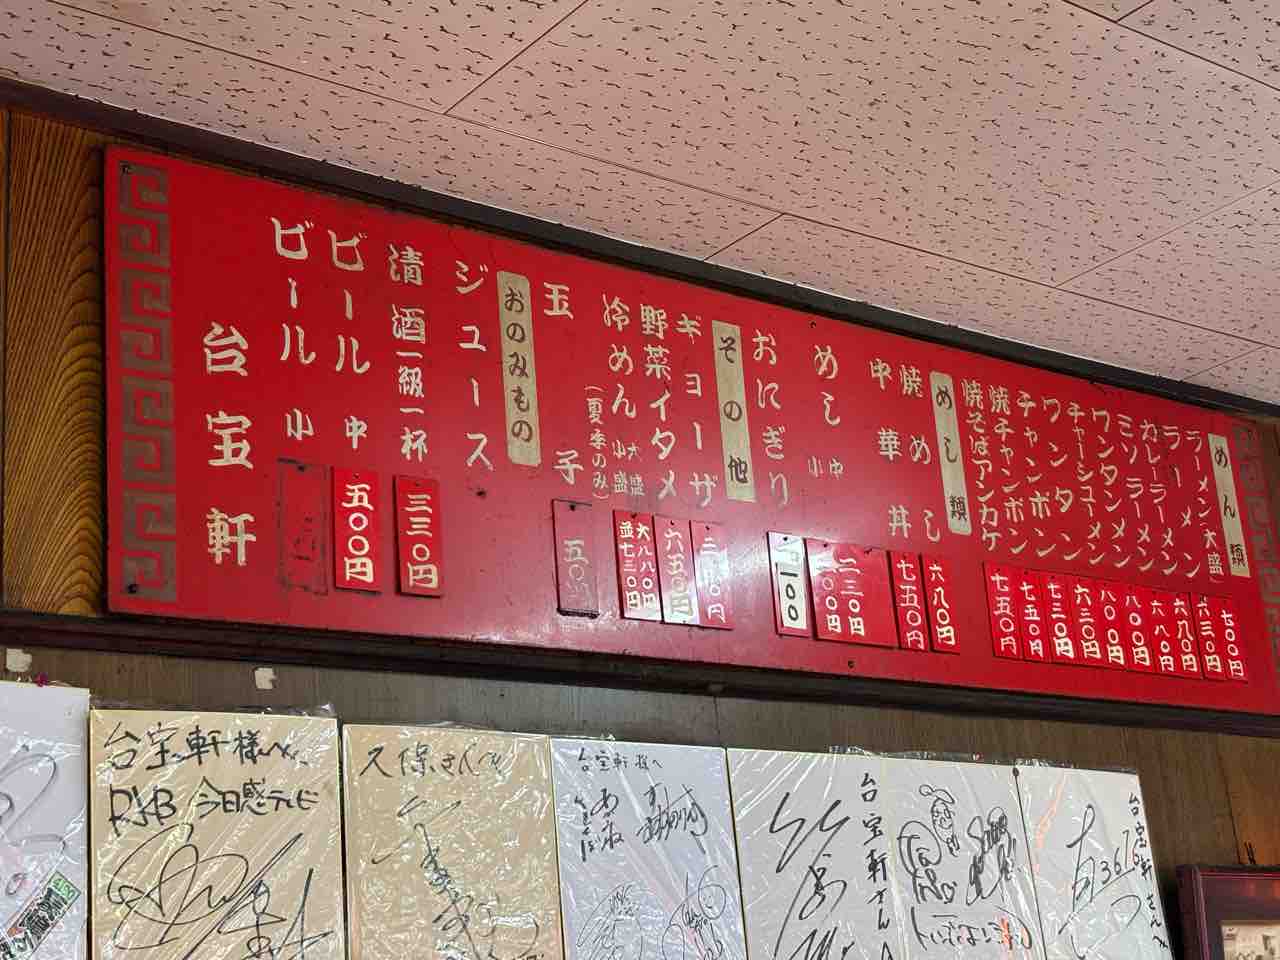 めん類
ラーメン(大盛) 七〇〇円
ラーメン 六三〇円
カレーラーメン 六八〇円
ミソラーメン 六八〇円
ワンタンメン 八〇〇円
チャーシューメン 八〇〇円
ワンタン 六三〇円
チャンポン 七三〇円
焼チャンポン 七五〇円
焼そばアンカケ 七五〇円
めし類
焼めし 六八〇円
中華丼 七五〇円
めし 中 小 二三〇円
おにぎり 一〇〇
その他
ギョーザ
野菜イタメ 六五〇円
冷めん 大盛 小盛 (夏季のみ) 大八八〇円 並七三〇円
玉子 五〇円
おのみもの
ジュース
清酒一級一杯 三三〇円
ビール 中 五〇〇円
ビール 小
台宝軒
台宝軒様へ
RKB 今日感テレビ
久保さんへ
台宝軒様へ
台宝軒さんへ
台宝軒さんへ